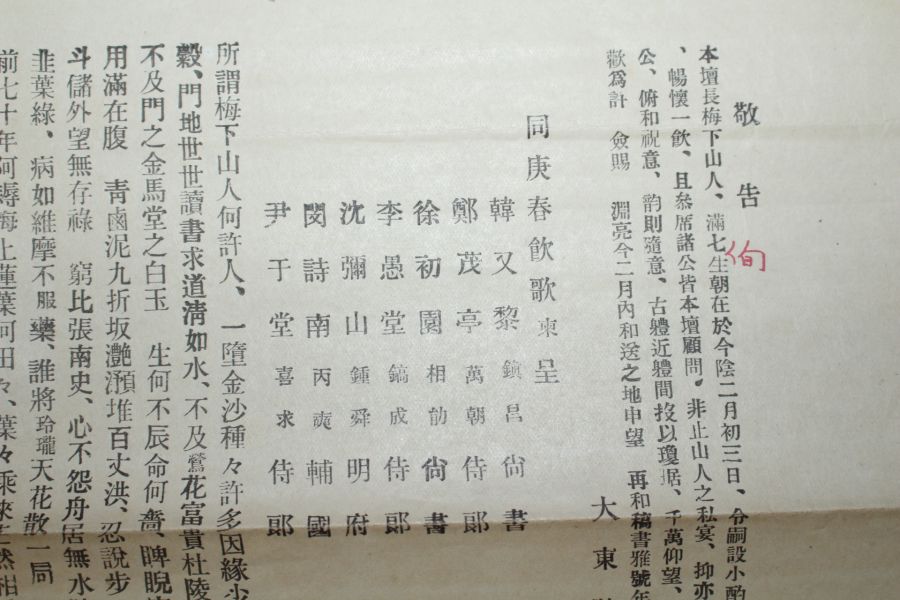 敬告
本壇長梅下山人、滿七生朝在於今陰二月初三日、令嗣設小酌
旬
、暢懷一飮、且叅席諸公皆本壇顧問。非止山人之私宴、抑亦
公、俯和祝意、韵則隨意、古軆近軆間投以瓊琚、千萬仰望、
歡爲計 僉賜 淵亮今二月內和送之地申望 再和稿書雅號年
大東
同庚春飮歌柬呈
韓又黎鎭昌尙書
鄭茂亭萬朝侍郞
徐初園相韵尙書
李愚堂鎬成侍郞
沈彌山鍾舜明府
閔詩南丙奭輔國
尹于堂喜求侍郞
所謂梅下山人何許人、一墮金沙種々許多因緣少
縠、門地世世讀書求道淸如水、不及鶯花富貴杜陵
不及門之金馬堂之白玉 生何不辰命何嗇、睥睨
用滿在腹 靑鹵泥九折坂灔澦堆百丈洪、忍說步
斗儲外望無存祿 窮比張南史、心不怨舟居無水
韭葉綠、病如維摩不服藥、誰將玲瓏天花散一局
前七十年何 海上蓮葉何田々、葉々乘來 然相